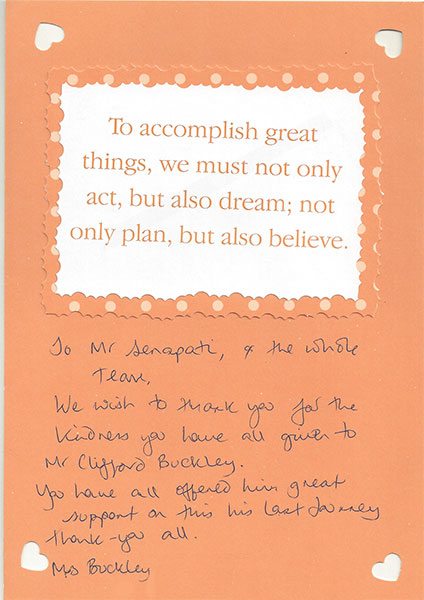 To accomplish great
things, we must not only
act, but also dream; not
only plan, but also believe.
To Mr Senapati, & the whole
Team,
We wish to thank you for the
kindness you have all given to
Mr Clifford Buckley.
You have all offered him great
support on this his last Journey
thank-you all.
Mrs Buckley